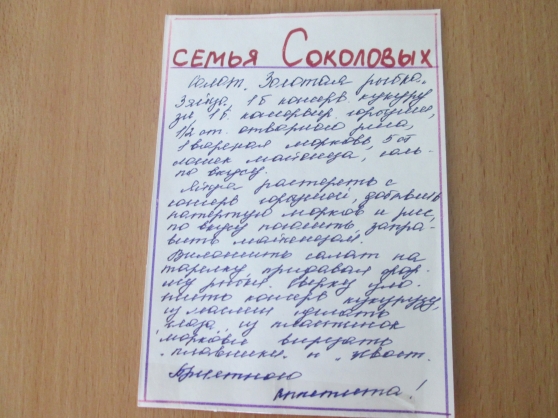 СЕМЬЯ СОКОЛОВЫХ
Салат „Золотая рыбка"
3 яйца, 1 б консерв кукуру
зы, 1 б. консервир. горошка,
1/2 ст. отварного риса,
1 вареная морковь, 5 ст
ложек майонеза, соль-
по вкусу.
Яйца растереть с
консерв горошком, добавить
натертую морковь и рис,
по вкусу посолить, запра-
вить майонезом.
Выложить салат на
тарелку, придавая фор-
му рыбы. Сверху уло-
жить консерв кукурузу,
из маслин сделать
глаза, из пластинок
моркови вырезать
„плавники" и „хвост".
Приятного
аппетита!